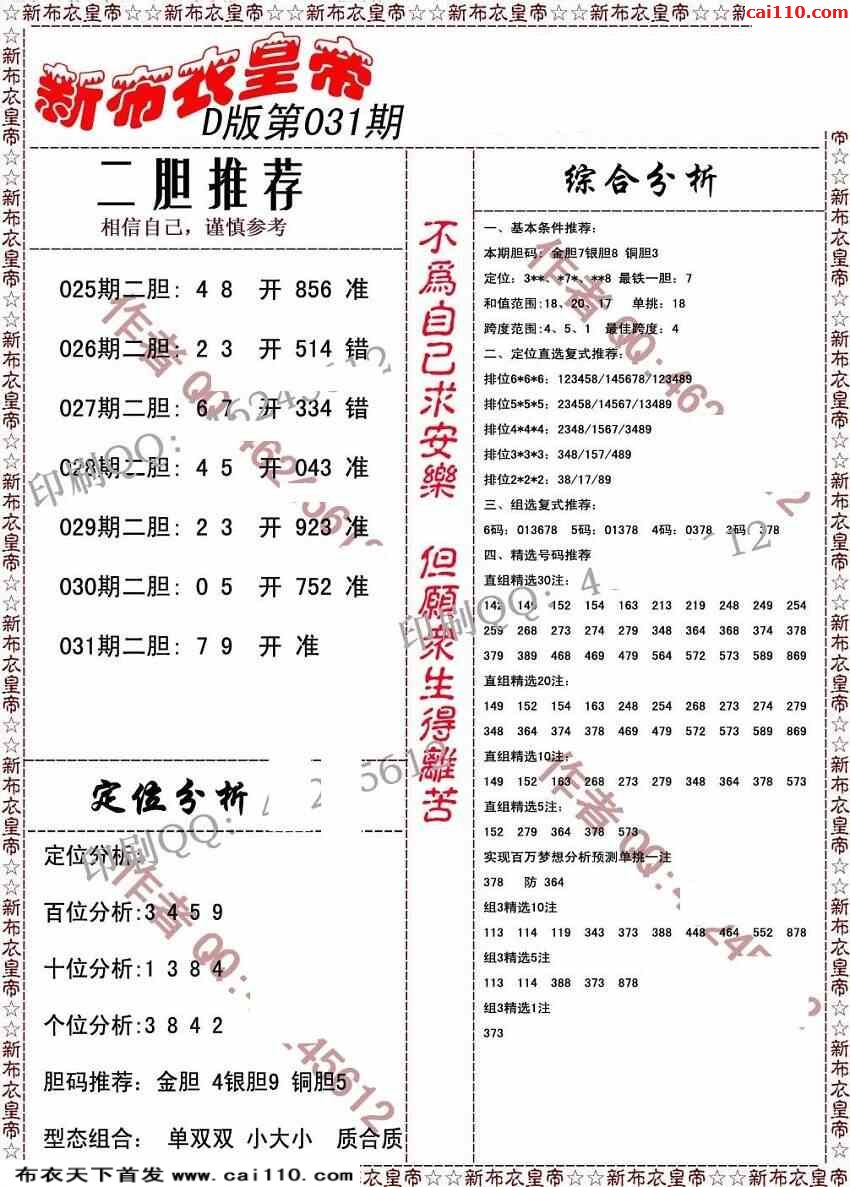 ☆☆新布衣皇帝☆☆新布衣皇帝☆☆新布衣皇帝☆☆新布衣皇帝☆☆新布衣皇帝☆☆新
cai110.com
新布衣皇帝
D版第031期
二胆推荐
相信自己，谨慎参考
025期二胆: 4 8 开 856 准
026期二胆: 2 3 开 514 错
027期二胆: 6 7 开 334 错
028期二胆: 4 5 开 043 准
029期二胆: 2 3 开 923 准
030期二胆: 0 5 开 752 准
031期二胆: 7 9 开 准
定位分析
定位分析:
百位分析:3 4 5 9
十位分析:1 3 8 4
个位分析:3 8 4 2
胆码推荐: 金胆 4银胆9 铜胆5
型态组合: 单双双 小大小 质合质
不為自己求安樂
但願眾生得離苦
综合分析
一、基本条件推荐:
本期胆码: 金胆7银胆8 铜胆3
定位: 3**、*7*、**8 最铁一胆: 7
和值范围:18、20、17 单挑: 18
跨度范围:4、5、1 最佳跨度: 4
二、定位直选复式推荐:
排位6*6*6; 123458/145678/123489
排位5*5*5; 23458/14567/13489
排位4*4*4; 2348/1567/3489
排位3*3*3; 348/157/489
排位2*2*2; 38/17/89
三、组选复式推荐:
6码: 013678 5码: 01378 4码: 0378 3码: 378
四、精选号码推荐
直组精选30注:
142 149 152 154 163 213 219 248 249 254
259 268 273 274 279 348 364 368 374 378
379 389 468 469 479 564 572 573 589 869
直组精选20注;
149 152 154 163 248 254 268 273 274 279
348 364 374 378 469 479 572 573 589 869
直组精选10注;
149 152 163 268 273 279 348 364 378 573
直组精选5注;
152 279 364 378 573
实现百万梦想分析预测单挑一注
378 防 364
组3精选10注
113 114 119 343 373 388 448 464 552 878
组3精选5注
113 114 388 373 878
组3精选1注
373
布衣天下首发 www.cai110.com
衣皇帝☆☆新布衣皇帝☆☆新布衣皇帝☆☆新布衣皇帝